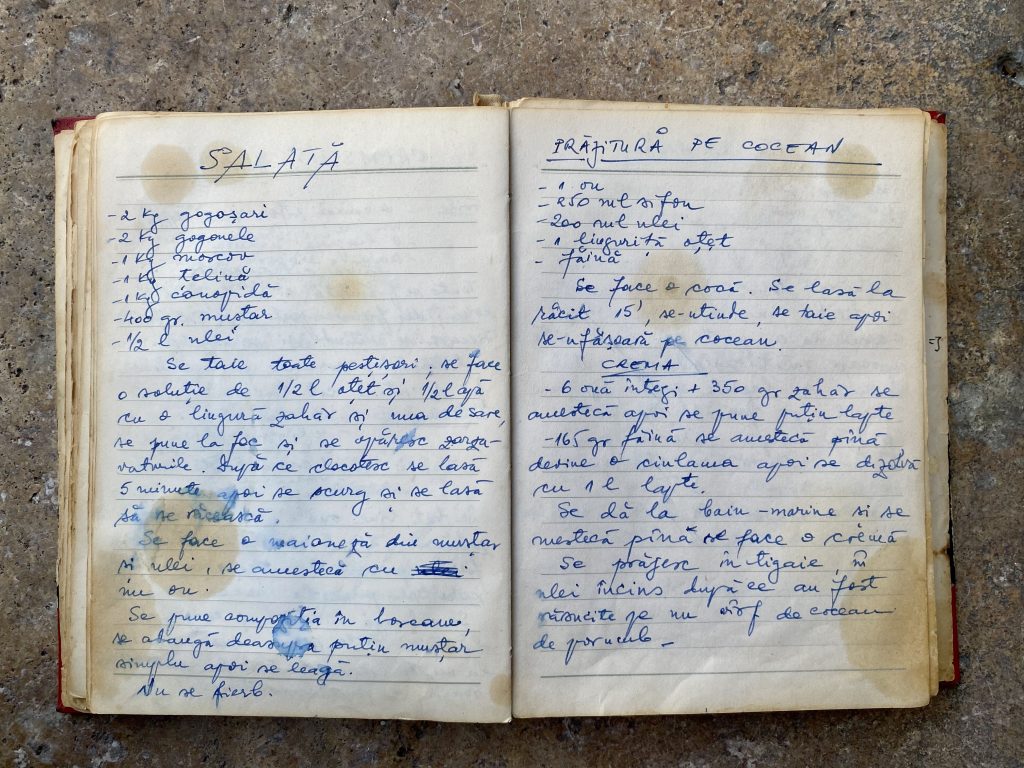 SALATĂ
- 2 Kg gogoșari
- 2 Kg gogonele
- 1 Kg morcov
- 1 Kg telină
- 1 Kg conopidă
- 400 gr. muștar
- 1/2 l ulei
Se taie toate peștișori, se face
o soluție de 1/2 l oțet și 1/2 l apă
cu o lingură zahăr și una de sare,
se pune la foc și se opăresc zarza-
vaturile. După ce clocotesc se lasă
5 minute apoi se scurg și se lasă
să se răcească.
Se face o maioneză din muștar
si ulei, se amestecă cu
un ou.
Se pune compoziția în borcane,
se adaugă deasupra puțin muștar
simplu apoi se leagă.
Nu se fierb.
PRĂJITURĂ PE COCEAN
- 1 ou
- 250 ml sifon
- 200 ml ulei
- 1 linguriță oțet
- făină
Se face o cocă. Se lasă la
răcit 15', se-ntinde, se taie apoi
se-nfășoară pe cocean.
CREMA
- 6 ouă întregi + 350 gr zahăr se
amestecă apoi se pune puțin lapte
- 165 gr făină se amestecă pînă
devine o ciulama apoi se dizolvă
cu 1 l lapte.
Se dă la bain-marine si se
mestecă pînă se face o cremă
Se prăjesc în tigaie, în
ulei încins după ce au fost
răsucite pe un vîrf de cocean
de porumb -